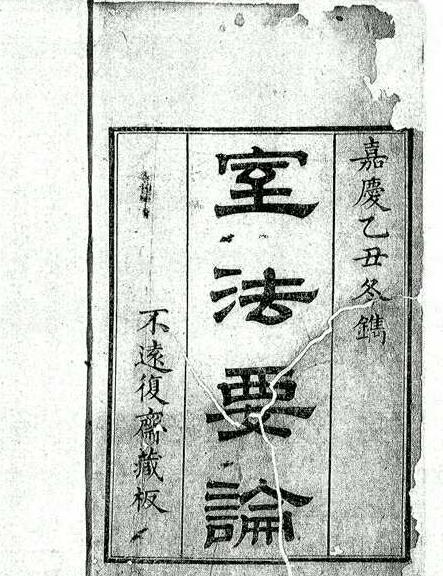 嘉慶乙丑冬鐫
室法要論
不遠復齋藏板